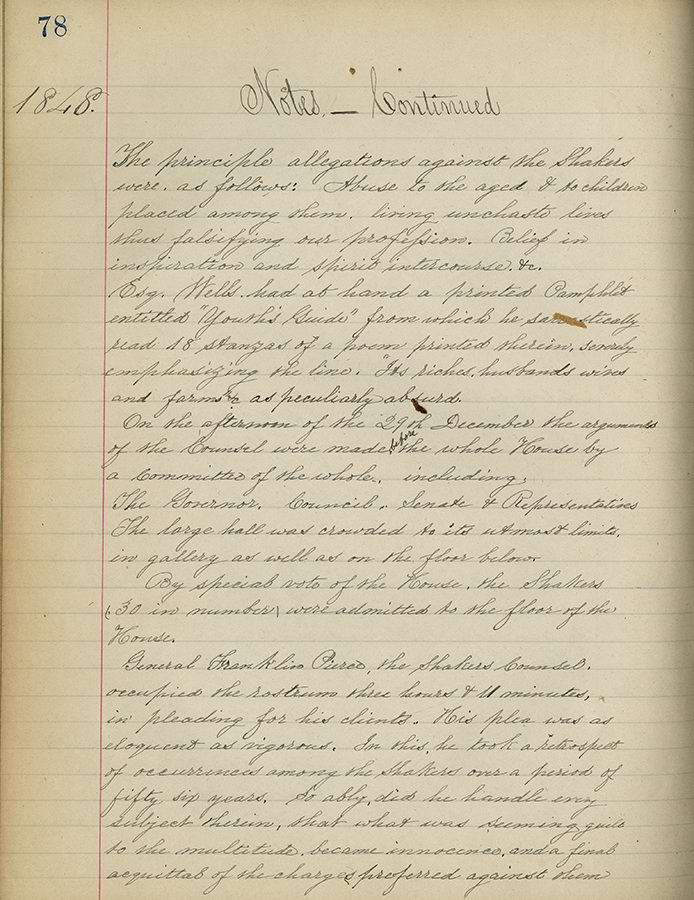 78
1848. Notes, — Continued
The principle allegations against the Shakers
were, as follows: Abuse to the aged & to children
placed among them, living unchaste lives
thus falsifying our profession. Belief in
inspiration and spirit intercourse. &c.
Esq. Wells, had at hand a printed Pamphlet
entitled "Youth's Guide" from which he sarcastically
read 18 stanzas of a poem printed therein, severely
emphasizing the line. "Its riches, husbands wives
and farms" as peculiarly absurd.
On the afternoon of the 29th December the arguments
of the Counsel were made before the whole House by
a Committee of the whole, including,
The Governor, Council, Senate & Representatives
The large hall was crowded to its utmost limits,
in gallery as well as on the floor below.
By special vote of the House, the Shakers
(30 in number) were admitted to the floor of the
House.
General Franklin Pierce, the Shakers Counsel,
occupied the rostrum three hours & 11 minutes,
in pleading for his clients. His plea was as
eloquent as vigorous. In this, he took a retrospect
of occurrences among the Shakers over a period of
fifty six years. So ably, did he handle every
subject therein, that what was seeming guilt
to the multitude, became innocence, and a final
acquittal of the charges preferred against them